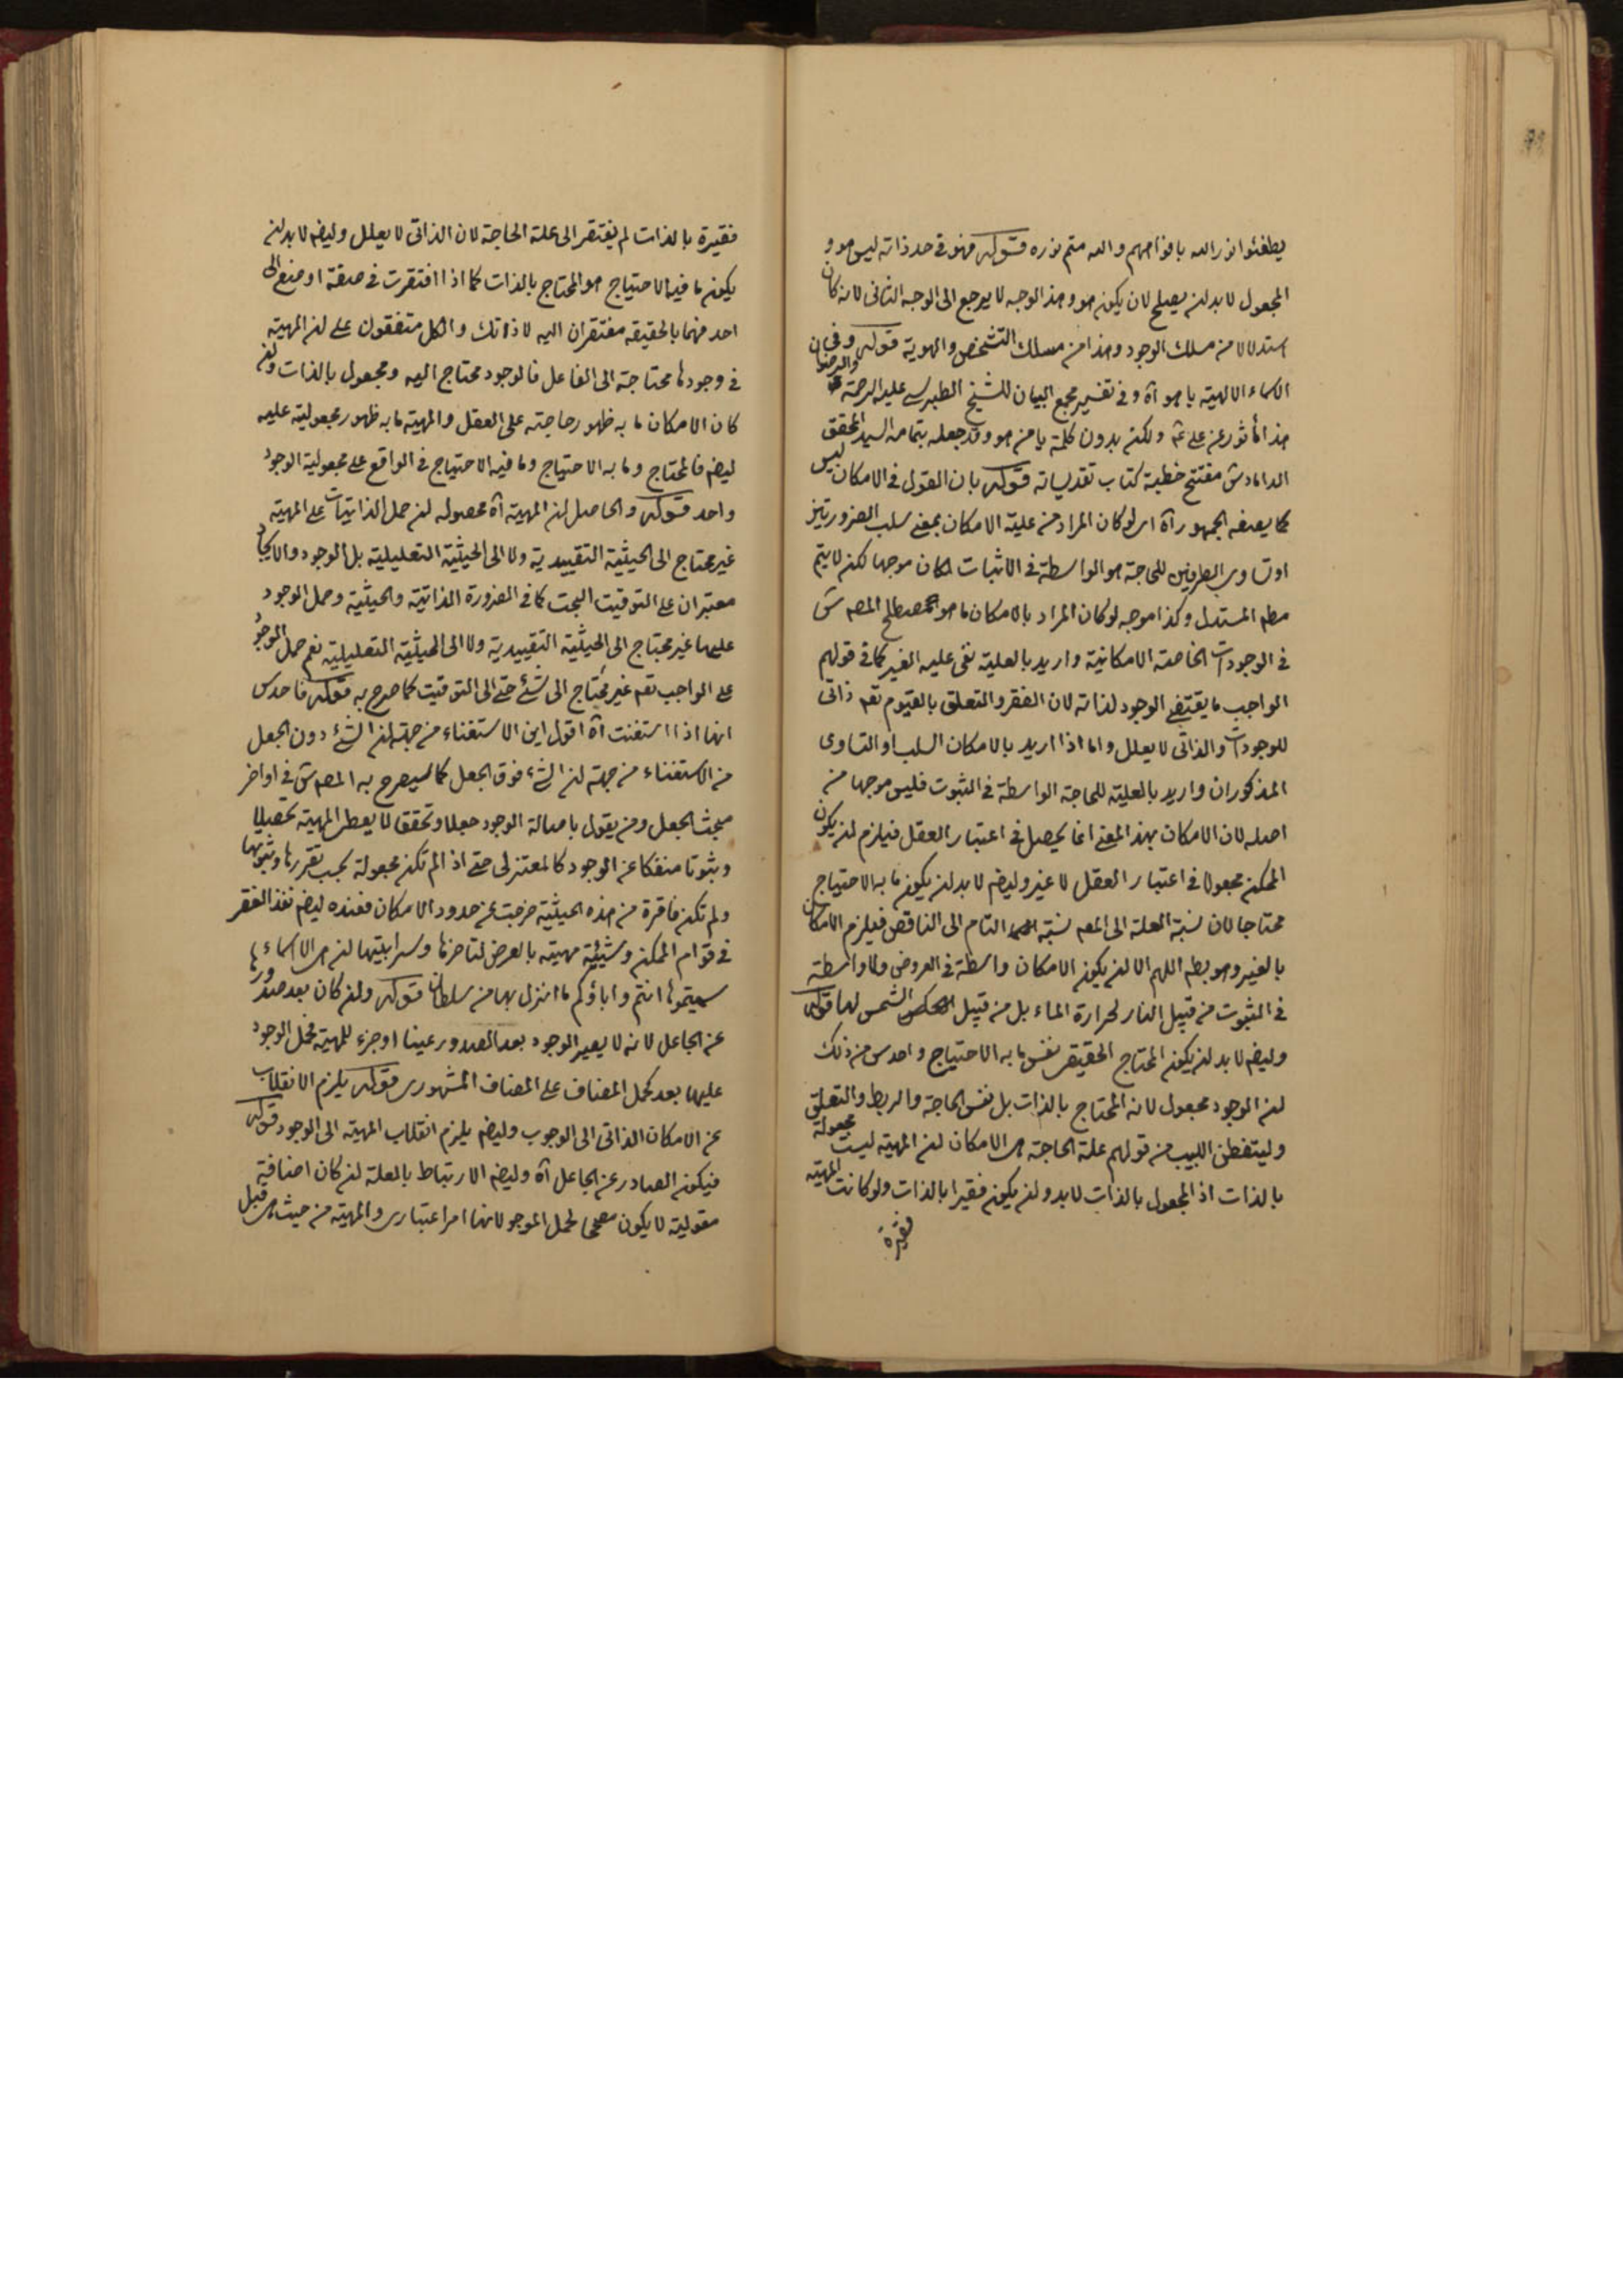 يطفئوا نور الله بافواههم والله متم نوره قوله فهو فى حد ذاته ليس هو و
المجعول لا بد ان يصلح لان يكون هو وهذا الوجه لا يرجع الى الوجه الثانى لانه كان
استدلالا من مسلك الوجود وهذا من مسلك التشخص والهوية قوله وفى
الاسماء الالهية يا هو آه وفى تفسير مجمع البيان للشيخ الطبرسى عليه الرحمة والرضوان
هذا مأثور عن على ع ولكن بدون كلمة يا من هو وقد جعله بتمامه السيد المحقق
الداماد ش مفتتح خطبة كتاب تقديساته قوله بان القول فى الامكان ليس
كما يصفه الجمهور آه اى لو كان المراد من علية الامكان بمعنى سلب الضرورتين
او تساوى الطرفين للحاجة هو الواسطة فى الاثبات لكان موجها لكن لا يتم
مطم المستدل وكذا موجه لو كان المراد بالامكان ما هو مصطلح المصم ش
فى الوجودات الخاصة الامكانية واريد بالعلية نفى علية الغير كما فى قولهم
الواجب ما يقتضى الوجود لذاته لان الفقر والتعلق بالقيوم تعم ذاتى
للوجودات والذاتى لا يعلل واما اذا اريد بالامكان السلب او التساوى
المذكوران واريد بالعلية للحاجة الواسطة فى الثبوت فليس موجها من
اصله لان الامكان بهذا المعنى انما يحصل فى اعتبار العقل فيلزم ان يكون
الممكن مجعولا فى اعتبار العقل لا غير وليضم لا بد ان يكون ما به الاحتياج
محتاجا لان نسبة العلة الى المعم نسبة التام الى الناقص فيلزم الامكان
بالغير وهو بطم اللهم الا ان يكون الامكان واسطة فى العروض ولا واسطة
فى الثبوت من قبيل النار لحرارة الماء بل من قبيل الشمس لها قوله
وليضم لا بد ان يكون المحتاج الحقيقى نفس ما به الاحتياج واحدس من ذلك
ان الوجود مجعول لانه المحتاج بالذات بل نفس الحاجة والربط والتعلق
وليتفطن اللبيب من قولهم علة الحاجة هى الامكان ان المهية ليست مجعولة
بالذات اذ المجعول بالذات لا بد وان يكون فقيرا بالذات ولو كانت المهية
فقيرة
فقيرة بالذات لم يفتقر الى علة الحاجة لان الذاتى لا يعلل وليضم لا بد ان
يكون ما فيه الاحتياج هو المحتاج بالذات كما اذا افتقرت فى صفة او صنع الى
احد فهما بالحقيقة مفتقران اليه لا ذاتك والكل متفقون على ان المهية
فى وجودها محتاجة الى الفاعل فالوجود محتاج اليه ومجعول بالذات وان
كان الامكان ما به ظهور حاجته على العقل والمهية ما به ظهور مجعوليته عليه
ليضم فالمحتاج وما به الاحتياج وما فيه الاحتياج فى الواقع على مجعولية الوجود
واحد قوله والحاصل ان المهية آه محصوله ان حمل الذاتيات على المهية
غير محتاج الى الحيثية التقييدية ولا الى الحيثية التعليلية بل الوجود والايجاد
معتبران على التوقيت البحت كما فى الضرورة الذاتية والحيثية وحمل الوجود
عليها غير محتاج الى الحيثية التقييدية ولا الى الحيثية التعليلية نعم حمل الوجود
على الواجب تعم غير محتاج الى شئ حتى الى التوقيت كما صرح به قوله فاحدس
انها اذا استغنت آه اقول اين الاستغناء من جهة ان الشئ دون الجعل
من الاستغناء من جهة ان الشئ فوق الجعل كما سيصرح به المصم ش فى اواخر
مبحث الجعل ومن يقول باصالة الوجود جعلا وتحققا لا يعطى المهية تحصيلا
وثبوتا منفكا عن الوجود كالمعتزلى حتى اذ الم تكن مجعولة بحسب تقررها وثبوتها
ولم تكن فاقرة من هذه الحيثية خرجت عن حدود الامكان فعنده ليضم نفذ الفقر
فى قوام الممكن وشيئية مهيته بالعرض لتاخرها وسرابيتها ان هى الا اسماء
سميتموها انتم واباؤكم ما انزل بها من سلطان قوله وان كان بعد صدورها
عن الجاعل لانه لا يصير الوجود بعد الصدور عينا او جزء للمهية فحمل الوجود
عليها بعد كحمل المضاف على المضاف المشهورى قوله يلزم الانقلاب
عن الامكان الذاتى الى الوجوب وليضم يلزم انقلاب المهية الى الوجود قوله
فيكون الصادر عن الجاعل آه وليضم الارتباط بالعلة ان كان اضافة
مقولية لا يكون مصححا لحمل الموجود لانها امر اعتبارى والمهية من حيث هى قبل